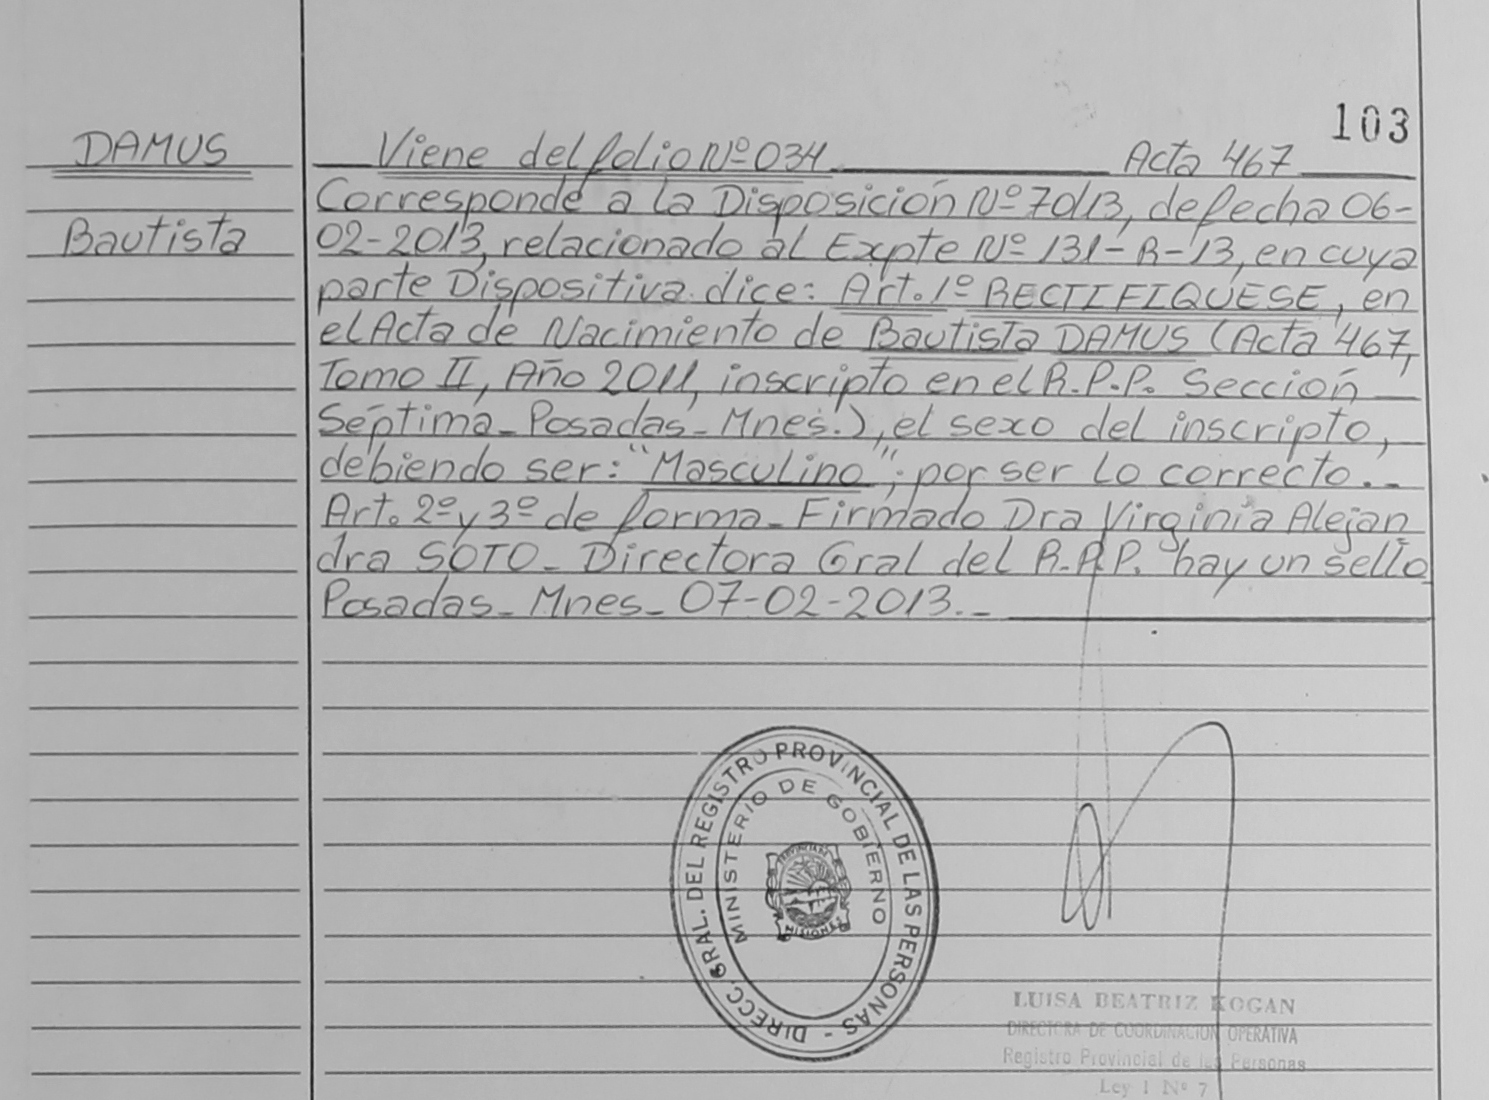 103
DAMUS
Bautista
Viene del folio Nº 034 Acta 467
Corresponde a la Disposición Nº 70/13, de fecha 06-
02-2013, relacionado al Expte Nº 131-R-13, en cuya
parte Dispositiva dice: Art. 1º RECTIFIQUESE, en
el Acta de Nacimiento de Bautista DAMUS (Acta 467,
Tomo II, Año 2011, inscripto en el R.P.P. Sección
Séptima_Posadas_Mnes.), el sexo del inscripto,
debiendo ser: "Masculino"; por ser lo correcto._
Art. 2º y 3º de forma_ Firmado Dra Virginia Alejan
dra SOTO_ Directora Gral del R.P.P. hay un sello
Posadas_Mnes_ 07-02-2013._
DIRECC. GRAL. DEL REGISTRO PROVINCIAL DE LAS PERSONAS -
MINISTERIO DE GOBIERNO
PROVINCIA DE
MISIONES
LUISA BEATRIZ KOGAN
DIRECTORA DE COORDINACION OPERATIVA
Registro Provincial de las Personas
Ley I Nº 7